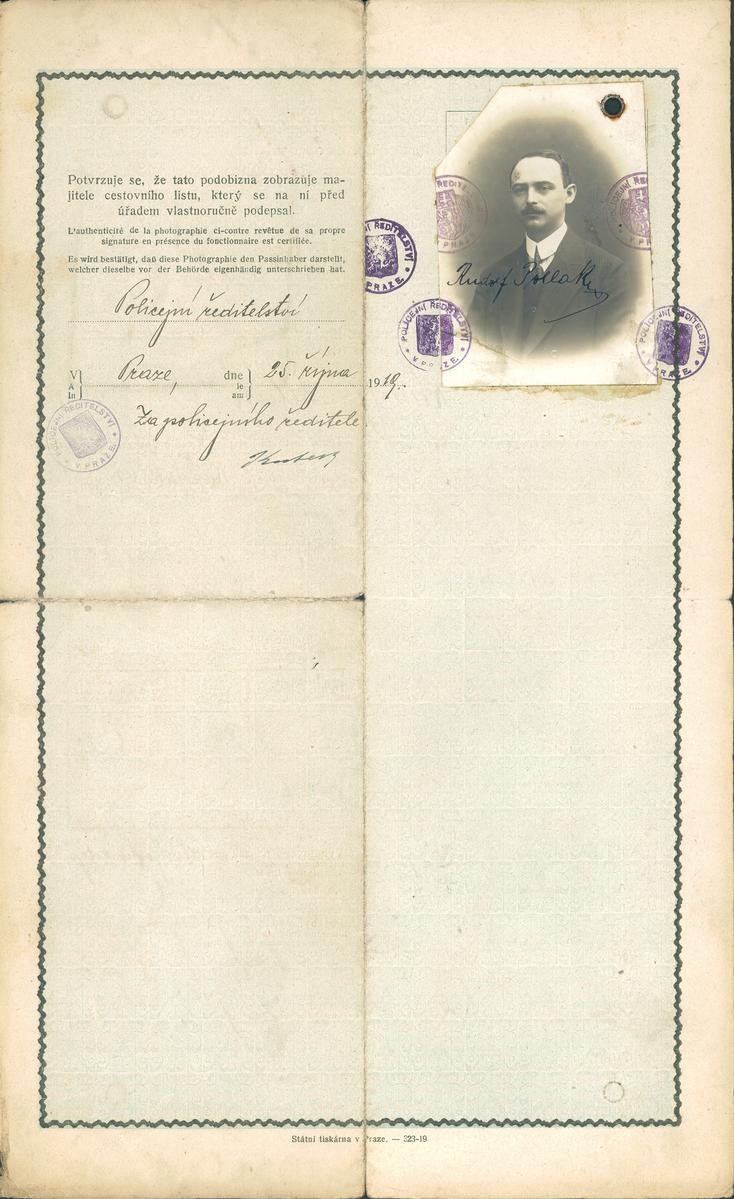 Potvrzuje se, že tato podobizna zobrazuje ma-
jitele cestovního listu, který se na ní před
úřadem vlastnoručně podepsal.
L'authenticité de la photographie ci-contre revêtue de sa propre
signature en présence du fonctionnaire est certifiée.
Es wird bestätigt, daß diese Photographie den Passinhaber darstellt,
welcher dieselbe vor der Behörde eigenhändig unterschrieben hat.
Policejní ředitelství
V
A
In
Praze,
dne
le
am
25. října 1919.
Za policejního ředitele
POLICEJNÍ ŘEDITELSTVÍ
V PRAZE
POLICEJNÍ ŘEDITELSTVÍ
V PRAZE
Rudolf Pollak
POLICEJNÍ ŘEDITELSTVÍ
V PRAZE
POLICEJNÍ ŘEDITELSTVÍ
V PRAZE
Státní tiskárna v Praze. — 323-19